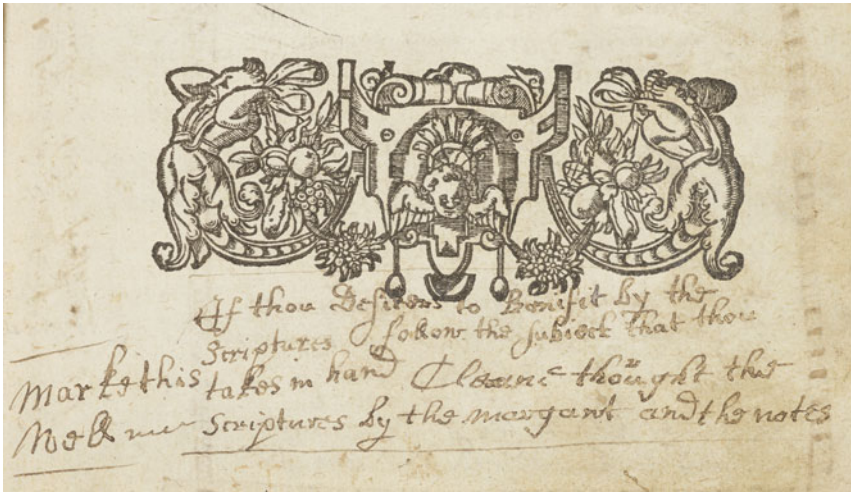 If thou Desirers to Benifit by the
Scriptures follow the subiect that thou
takes in hand Cleane thought the
Scriptures by the margant and the notes
Marke this
Well